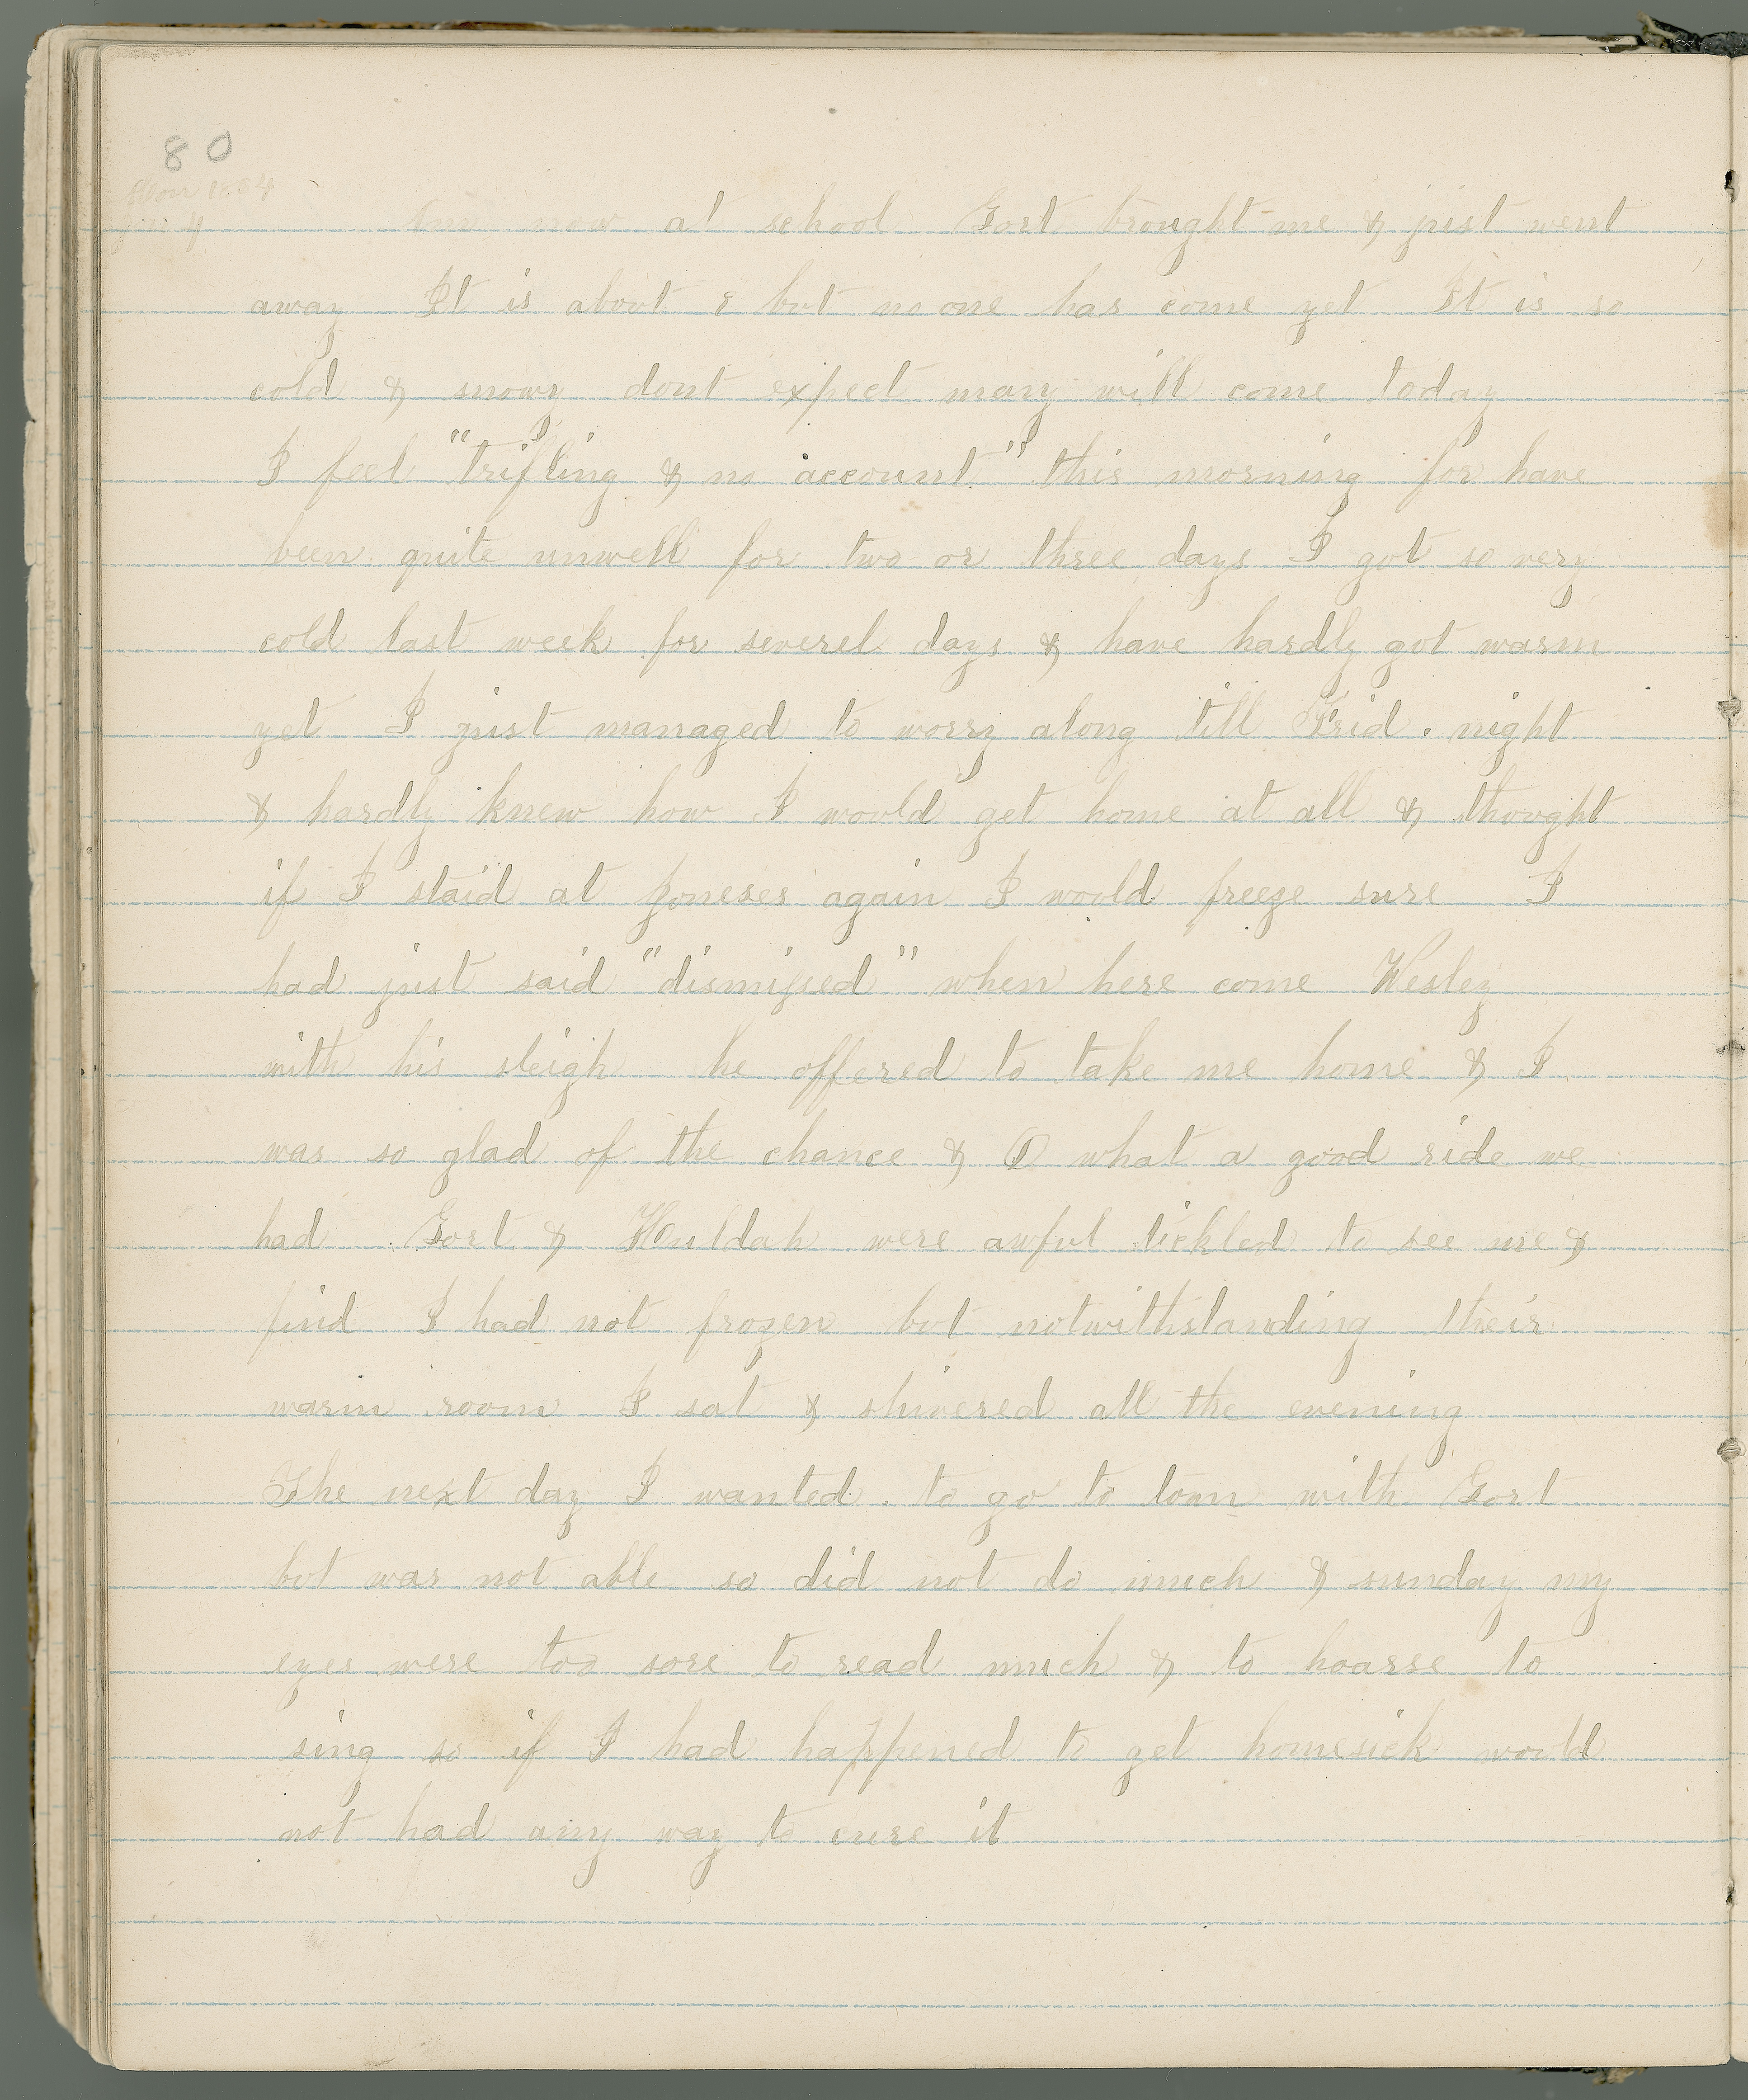 80
Mon 1884
Jan 4
Am now at school Gort brought me & just went
away It is about 8 but no one has come yet It is so
cold & snowy dont expect many will come today
I feel "trifling & no account" this morning for have
been quite unwell for two or three days I got so very
cold last week for severel days & have hardly got warm
yet I just managed to worry along till Frid. night
& hardly knew how I would get home at all & thought
if I staid at Joneses again I would freeze sure I
had just said "dismissed" when here come Wesley
with his sleigh he offered to take me home & I
was so glad of the chance & O what a good ride we
had Gort & Huldah were awful tickled to see me &
find I had not frozen but notwithstanding their
warm room I sat & shivered all the evening
The next day I wanted to go to town with Gort
but was not able so did not do much & sunday my
eyes were too sore to read much & to hoarse to
sing so if I had happened to get homesick would
not had any way to cure it